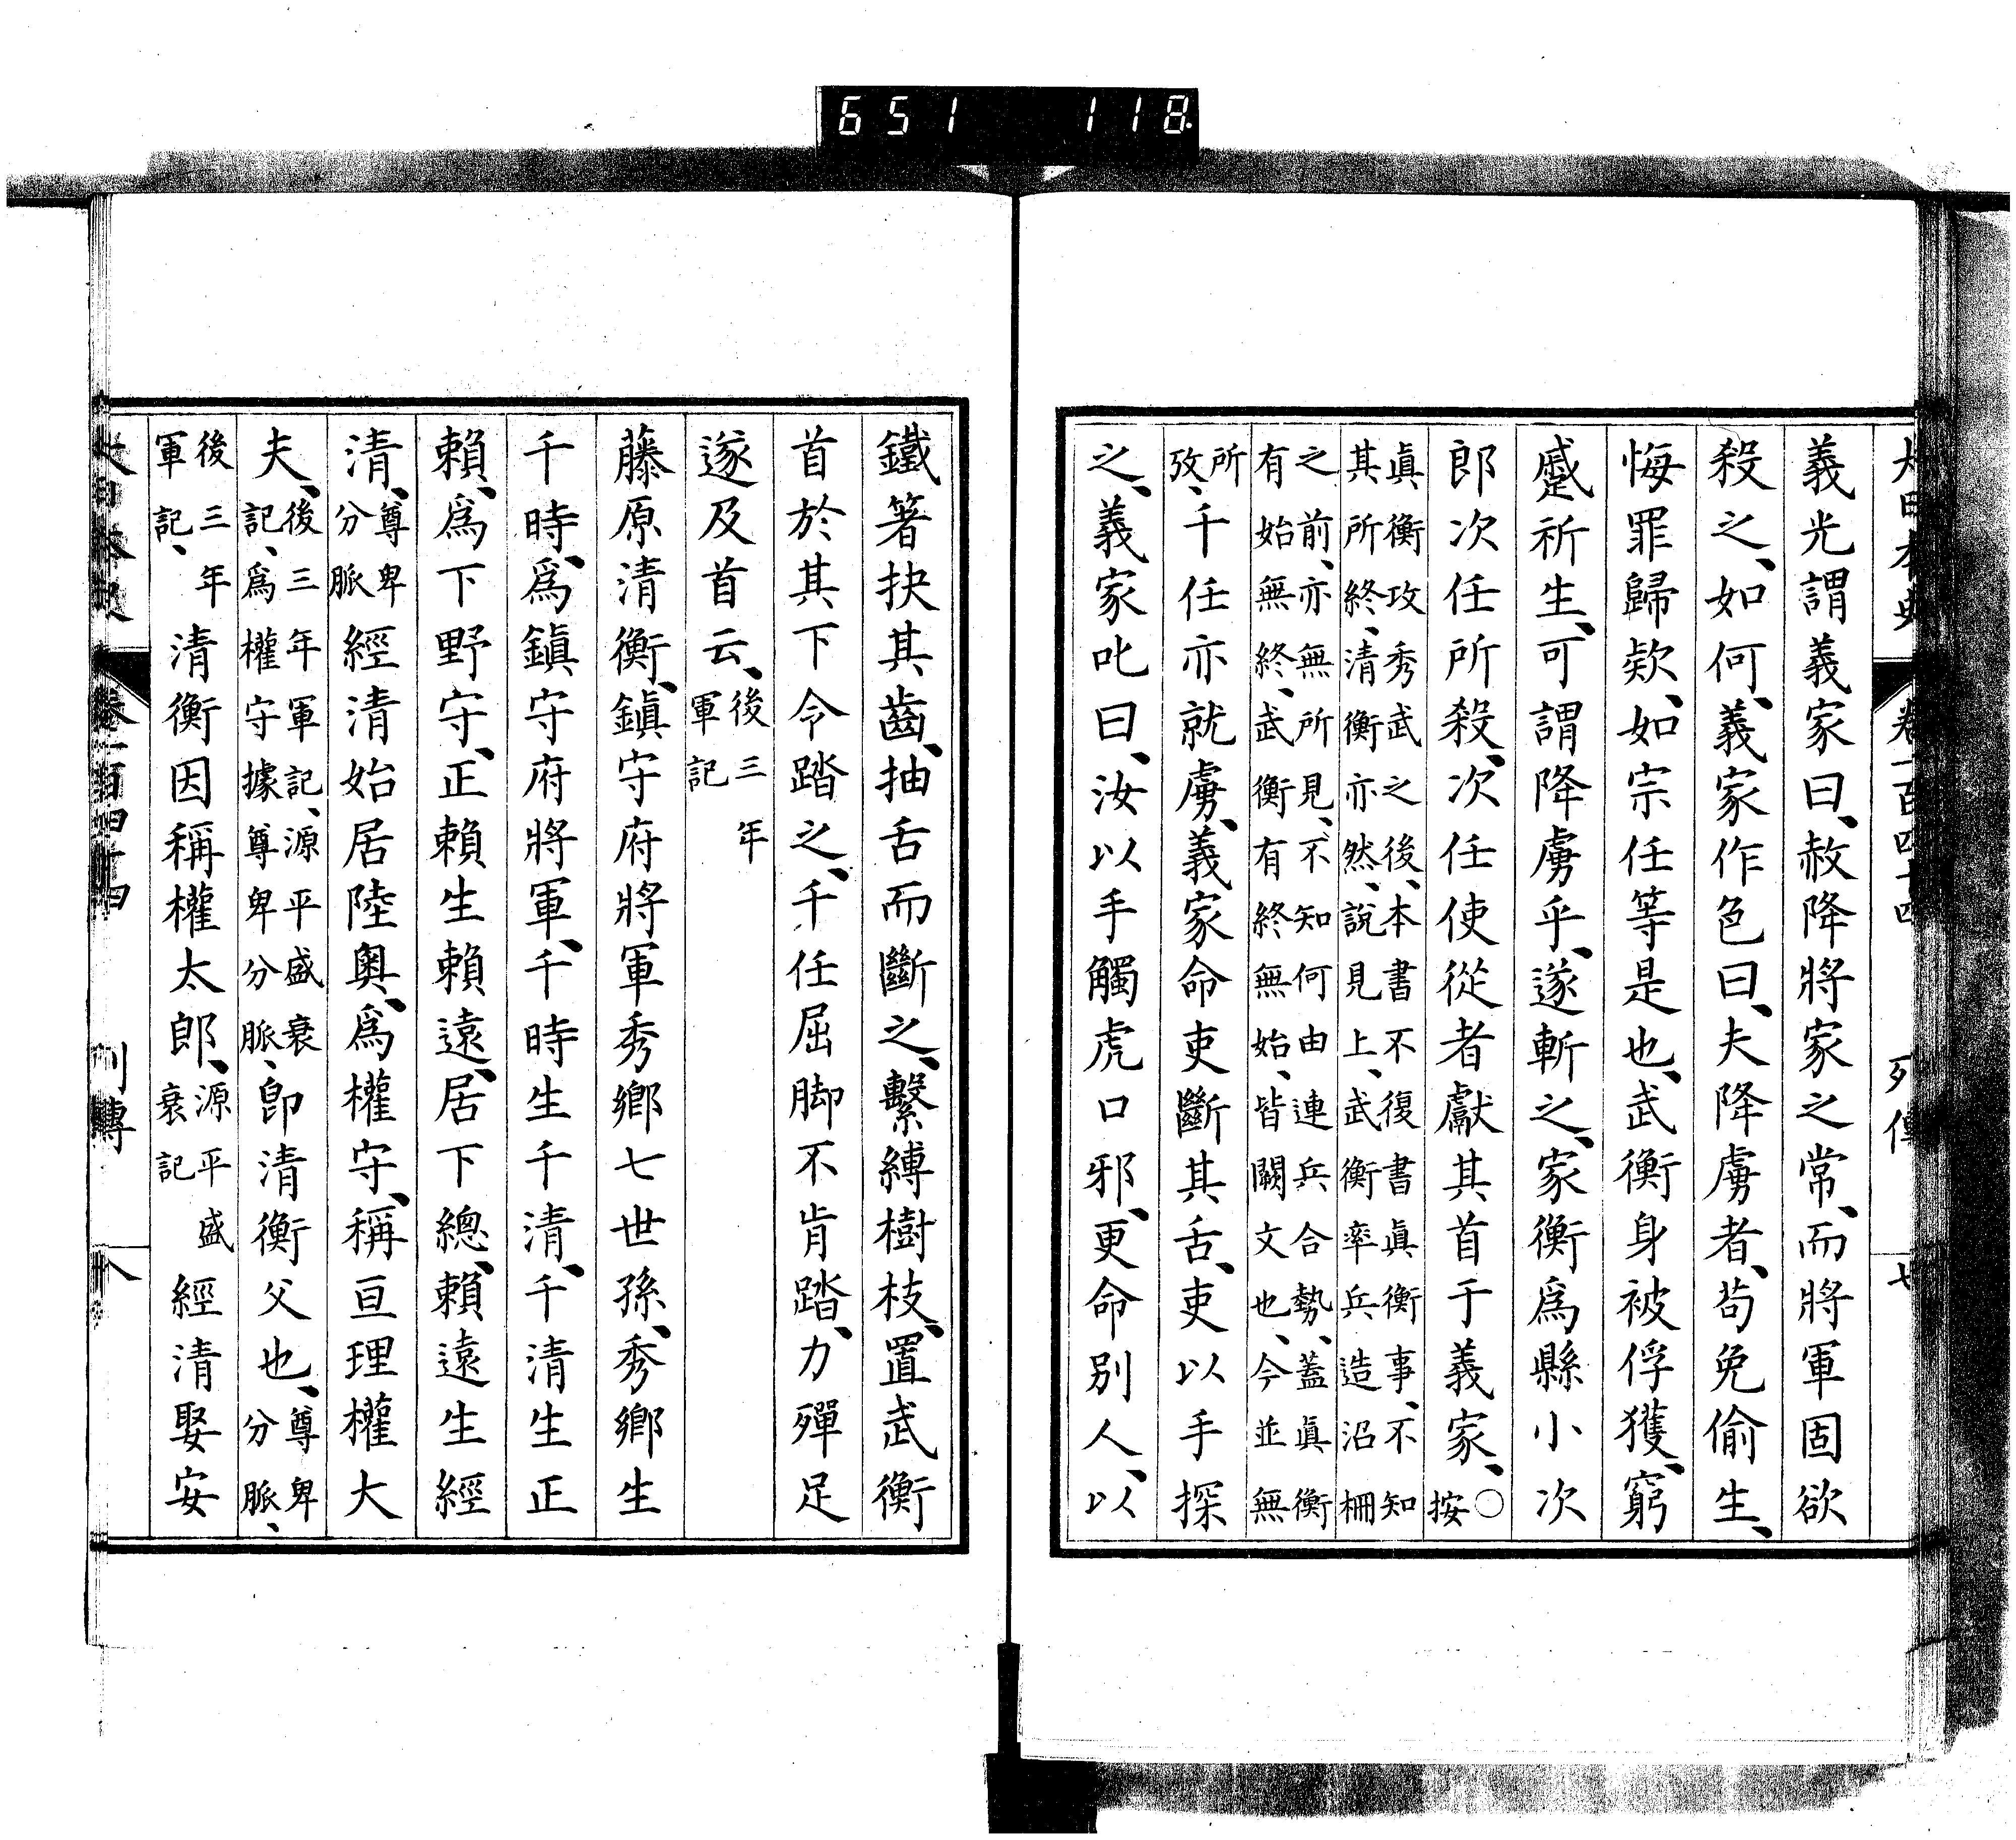 651 118
大日本史 卷一百四十四 列傳 七
義光謂義家曰、赦降將家之常、而將軍固欲
殺之、如何、義家作色曰、夫降虜者、苟免偷生、
悔罪歸款、如宗任等是也、武衡身被俘獲、窮
蹙祈生、可謂降虜乎、遂斬之、家衡爲縣小次
郎次任所殺、次任使從者獻其首于義家、○按
眞衡攻秀武之後、本書不復書眞衡事、不知
其所終、清衡亦然、說見上、武衡率兵造沼柵
之前、亦無所見、不知何由連兵合勢、蓋眞衡
有始無終、武衡有終無始、皆闕文也、今並無
所
攷、千任亦就虜、義家命吏斷其舌、吏以手探
之、義家叱曰、汝以手觸虎口邪、更命別人、以
鐵箸抉其齒、抽舌而斷之、繫縛樹枝、置武衡
首於其下令踏之、千任屈脚不肯踏、力殫足
遂及首云、後三年軍記
藤原清衡、鎭守府將軍秀鄉七世孫、秀鄉生
千時、爲鎭守府將軍、千時生千清、千清生正
賴、爲下野守、正賴生賴遠、居下總、賴遠生經
清、尊卑分脈經清始居陸奧、爲權守、稱亘理權大
夫、後三年軍記、源平盛衰記、爲權守據尊卑分脈、卽清衡父也、尊卑分脈、
後三年軍記、清衡因稱權太郎、源平盛衰記經清娶安
大日本史 卷一百四十四 列傳 八